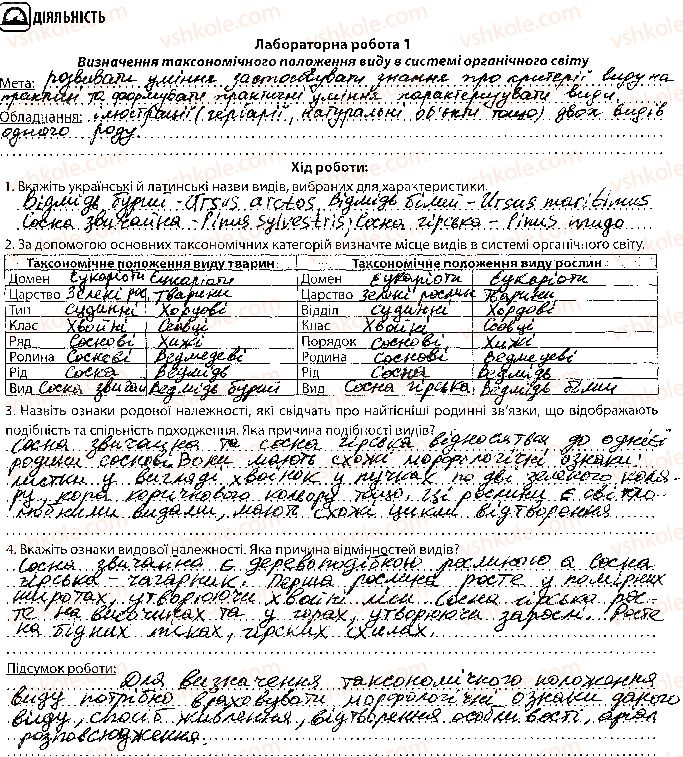 ДІЯЛЬНІСТЬ
Лабораторна робота 1
Визначення таксономічного положення виду в системі органічного світу
Мета: розвивати уміння застосовувати знання про критерії виду на
практиці та формувати практичні уміння характеризувати види.
Обладнання: ілюстрації (гербарії, натуральні об'єкти тощо) двох видів
одного роду
Хід роботи:
1. Вкажіть українські й латинські назви видів, вибраних для характеристики.
Відмідь бурий - Ursus arctos, Відмідь білий - Ursus maritimus
Сосна звичайна - Pinus sylvestris, Сосна гірська - Pinus mugo
2. За допомогою основних таксономічних категорій визначте місце видів в системі органічного світу.
Таксономічне положення виду тварин Таксономічне положення виду рослин
Домен Еукаріоти Еукаріоти Домен Еукаріоти Еукаріоти
Царство Зелені рос Тварини Царство Зелені рослин Тварини
Тип Судинні Хордові Відділ Судинні Хордові
Клас Хвойні Ссавці Клас Хвойні Ссавці
Ряд Соснові Хижі Порядок Соснові Хижі
Родина Соснові Ведмедеві Родина Соснові Ведмедеві
Рід Сосна Ведмідь Рід Сосна Ведмідь
Вид Сосна звичай Ведмідь бурий Вид Сосна гірська Ведмідь білий
3. Назвіть ознаки родової належності, які свідчать про найтісніші родинні зв'язки, що відображають
подібність та спільність походження. Яка причина подібності видів?
Сосна звичайна та сосна гірська відносяться до однієї
родини соснові. Вони мають схожі морфологічні ознаки:
листки у вигляді хвоїнок у пучках по дві зеленого кольо-
ру, кора коричнового кольору тощо. Ці рослини є світло-
любними видами, мають схожі цикли відтворення
4. Вкажіть ознаки видової належності. Яка причина відмінностей видів?
Сосна звичайна є деревоподібною рослиною а сосна
гірська - чагарник. Перша рослина росте у помірних
широтах, утворюючи хвойні ліси. Сосна гірська рос-
те на височинах та у горах, утворюючи зарослі. Росте
на бідних пісках, гірских схилах.
Підсумок роботи: Для визначення таксономічного положення
виду потрібно враховувати морфологічні ознаки даного
виду, спосіб живлення, відтворення особливості, ареал
розповсюдження.